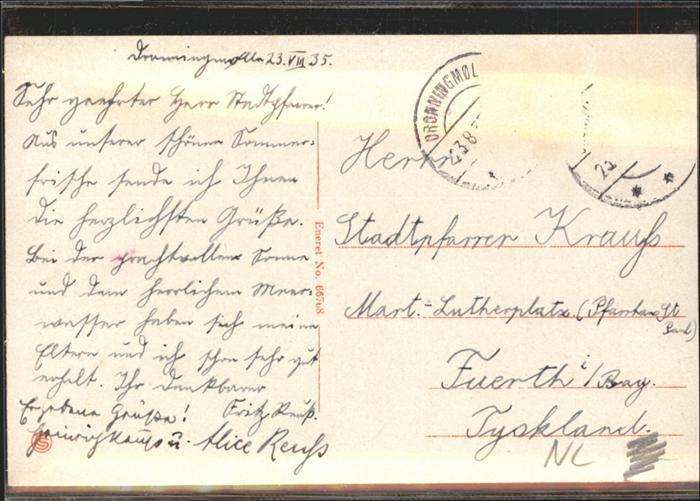 Dronningmølle 23.VIII 35.
Sehr geehrter Herr Stadtpfarrer!
Aus unserer schönen Sommer-
frische sende ich Ihnen
die herzlichsten Grüße.
Bei der prachtvollen Sonne
und dem herrlichen Meer-
wasser haben sich meine
Eltern und ich schon sehr gut
erholt. Ihr dankbarer
Fritz Reuß.
Ergebene Grüße!
Heinrich u. Alice Reuß
Eneret No.
DRONNINGMØL
23 8
2
Herrn
Stadtpfarrer Krauß
Mart.-Lutherplatz (Pfarrhaus St
Paul)
Fuerth i/Bay.
Tyskland.
NL